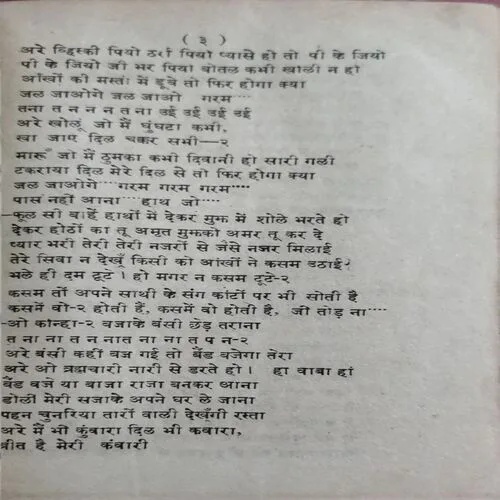 ( ३ )
अरे व्हिस्की पियो ठर्रा पियो प्यासे हो तो पी के जियो
पी के जियो जी भर पिया बोतल कभी खाली न हो
आँखों की मस्ती में डूबे तो फिर होगा क्या
जल जाओगे जल जाओ गरम····
तना त न न न त ना उई उई उई उई
अरे खोलूं जो मैं घुंघटा कभी,
खा जाए दिल चक्कर सभी—२
मारूँ जो मैं ठुमका कभी दिवानी हो सारी गली
टकराया दिल मेरे दिल से तो फिर होगा क्या
जल जाओगे···गरम गरम गरम····
पास नहीं आना···हाथ जो····
-फूल सी बाहें हाथों में देकर मुझ में शोले भरते हो
देकर होठों का तू अमृत मुझको अमर तू कर दे
प्यार भरी तेरी तेरी नजरों से जैसे नजर मिलाई
तेरे सिवा न देखूँ किसी को आंखों ने कसम उठाई
भले ही दम टूटे । हो मगर न कसम टूटे-२
कसम तों अपने साथी के संग कांटों पर भी सोती है
कसमें वो-२ होती हैं, कसमें वो होती है, जी तोड़ ना····
-ओ कान्हा-२ बजाके बंसी छेड़ तराना
त ना ना त न ना त ना ना त प न-२
अरे बंसी कहीं बज गई तो बैंड बजेगा तेरा
अरे ओ ब्रह्मचारी नारी से डरते हो। हा वाबा हां
बैंड बजे या बाजा राजा बनकर आना
डोली मेरी सजाके अपने घर ले जाना
पहन चुनरिया तारों वाली देखूँगी रस्ता
अरे मैं भी कुंवारा दिल भी कवारा,
प्रीत है मेरी कंवारी